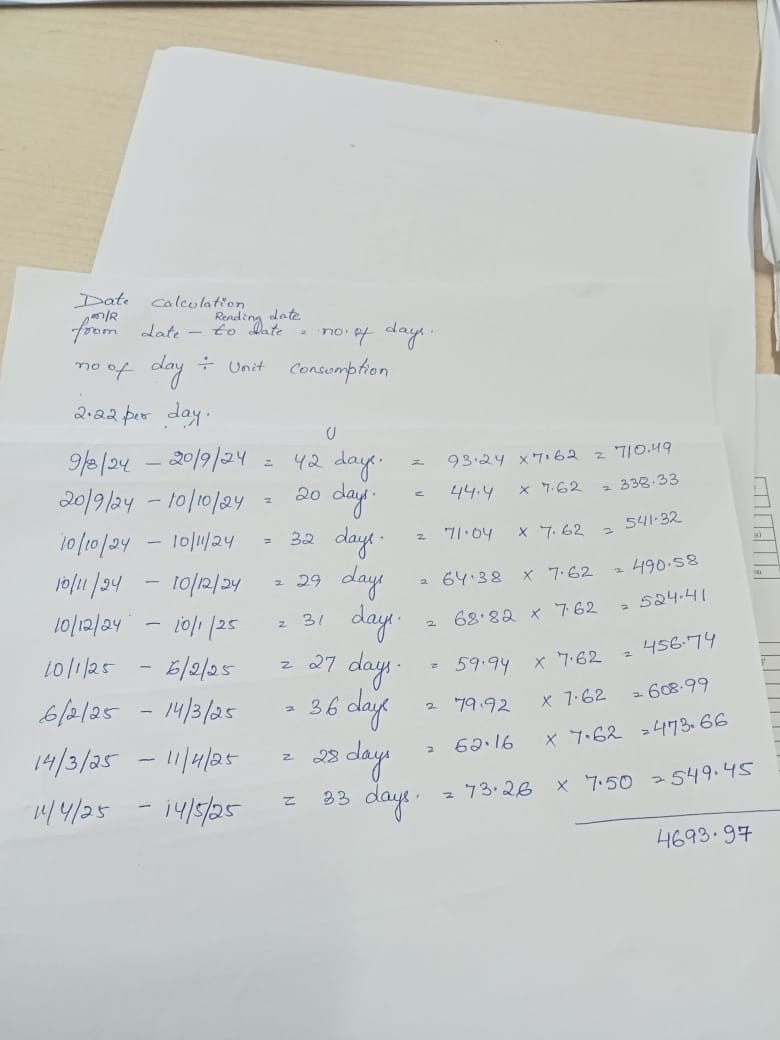 Date calculation
m/R Reading date
from date - to date = no. of days.
no of day ÷ Unit Consumption
2.22 per day.
9/8/24 - 20/9/24 = 42 days. = 93.24 x 7.62 = 710.49
20/9/24 - 10/10/24 = 20 days. = 44.4 x 7.62 = 338.33
10/10/24 - 10/11/24 = 32 days. = 71.04 x 7.62 = 541.32
10/11/24 - 10/12/24 = 29 days = 64.38 x 7.62 = 490.58
10/12/24 - 10/1/25 = 31 days. = 68.82 x 7.62 = 524.41
10/1/25 - 6/2/25 = 27 days. = 59.94 x 7.62 = 456.74
6/2/25 - 14/3/25 = 36 days = 79.92 x 7.62 = 608.99
14/3/25 - 11/4/25 = 28 days = 62.16 x 7.62 = 473.66
11/4/25 - 14/5/25 = 33 days. = 73.26 x 7.50 = 549.45
4693.97